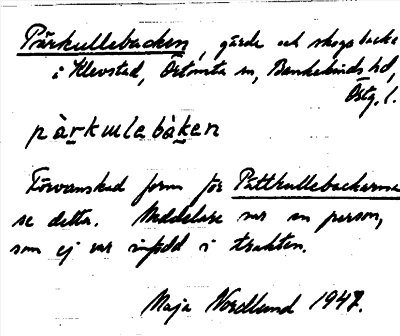 Pärkullebacken, gärde och skogsbacke
i Klevstad, Örtomta sn, Bankekinds hd,
Östg. l.
pàrkulebàken
Förvanskad form för Pättkullebackarna
se detta. Meddelare var en person,
som ej var infödd i trakten.
Maja Nordlund 1947.